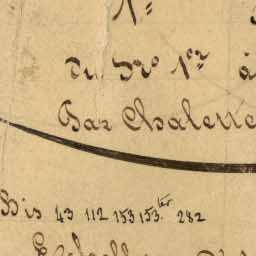 1=
du Nro 1er à
Par Chalette
Bis 43 112 153 153ter 282